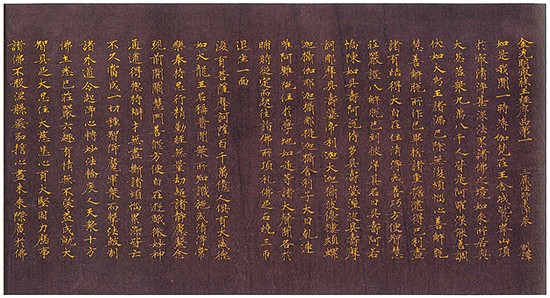 金光明最勝王經序品第一 三藏法師義淨奉 制譯
如是我聞一時薄伽梵在王舍城鷲峯山頂
於最清淨甚深法界諸佛之境如來所居與
大苾芻眾九萬八千人皆是阿羅漢能善調
伏如大象王諸漏已除無復煩惱心善解脫
慧善解脫所作已畢捨諸重擔逮得己利盡
諸有結得大自在住清淨戒善巧方便智慧
莊嚴證八解脫已到彼岸其名曰具壽阿若
憍陳如具壽阿說侍多具壽婆濕波具壽摩
訶那摩具壽婆帝利迦大迦攝波優樓頻螺
迦攝伽耶迦攝那提迦攝舍利子大目乾連
唯阿難陀住於學地如是等諸大聲聞各於
晡時從定而起往詣佛所頂禮佛足右繞三帀
退坐一面
復有菩薩摩訶薩百千萬億人俱有大威德
如大龍王名稱普聞眾所知識施戒清淨常
樂奉持忍行精勤經無量劫超諸靜慮繫念
現前開闡慧門善修方便自在遊戲微妙神
通逮得總持辯才無盡斷諸煩惱累染皆亡
不久當成一切種智降魔軍眾而擊法鼓制
諸外道令起淨心轉妙法輪度人天眾十方
佛土悉已莊嚴六趣有情無不蒙益成就大
智具足大忍住大慈悲心有大堅固力歷事
諸佛不般涅槃發弘誓心盡未來際廣於佛